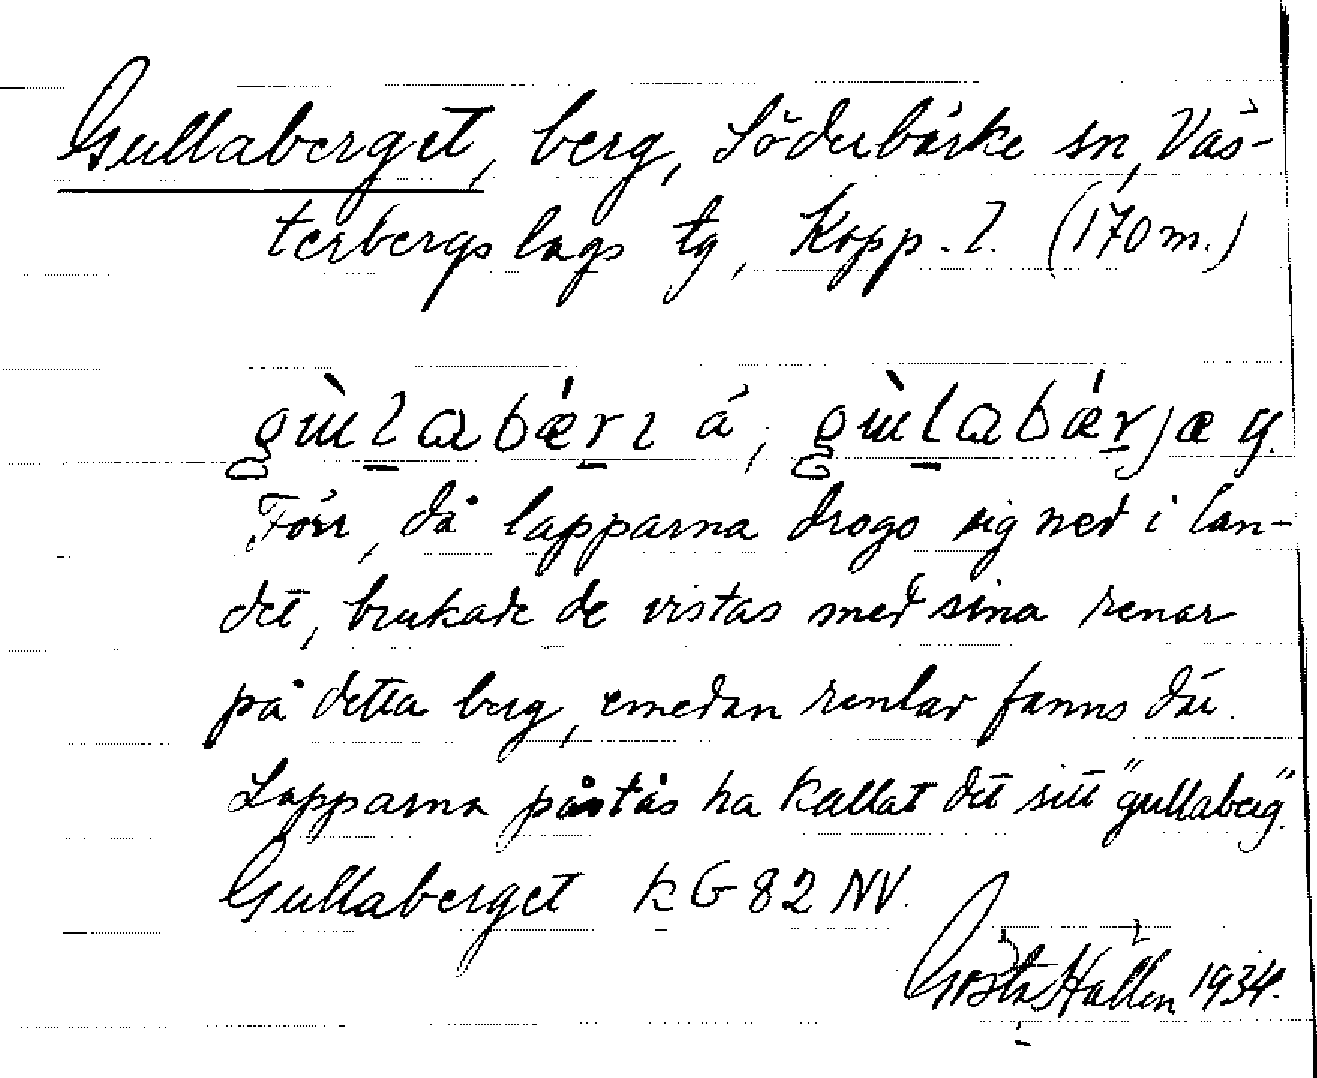 Gullaberget, berg, Söderbärke sn, Väs-
terbergslags tg, Kopp. l. (170 m.)
Förr, då lapparna drogo sig ned i lan-
det, brukade de vistas med sina renar
på detta berg, emedan renlav fanns där.
Lapparna påstås ha kallat det sitt "gullaberg".
Gullaberget kG 82 NV.
Gösta Hallén 1934.